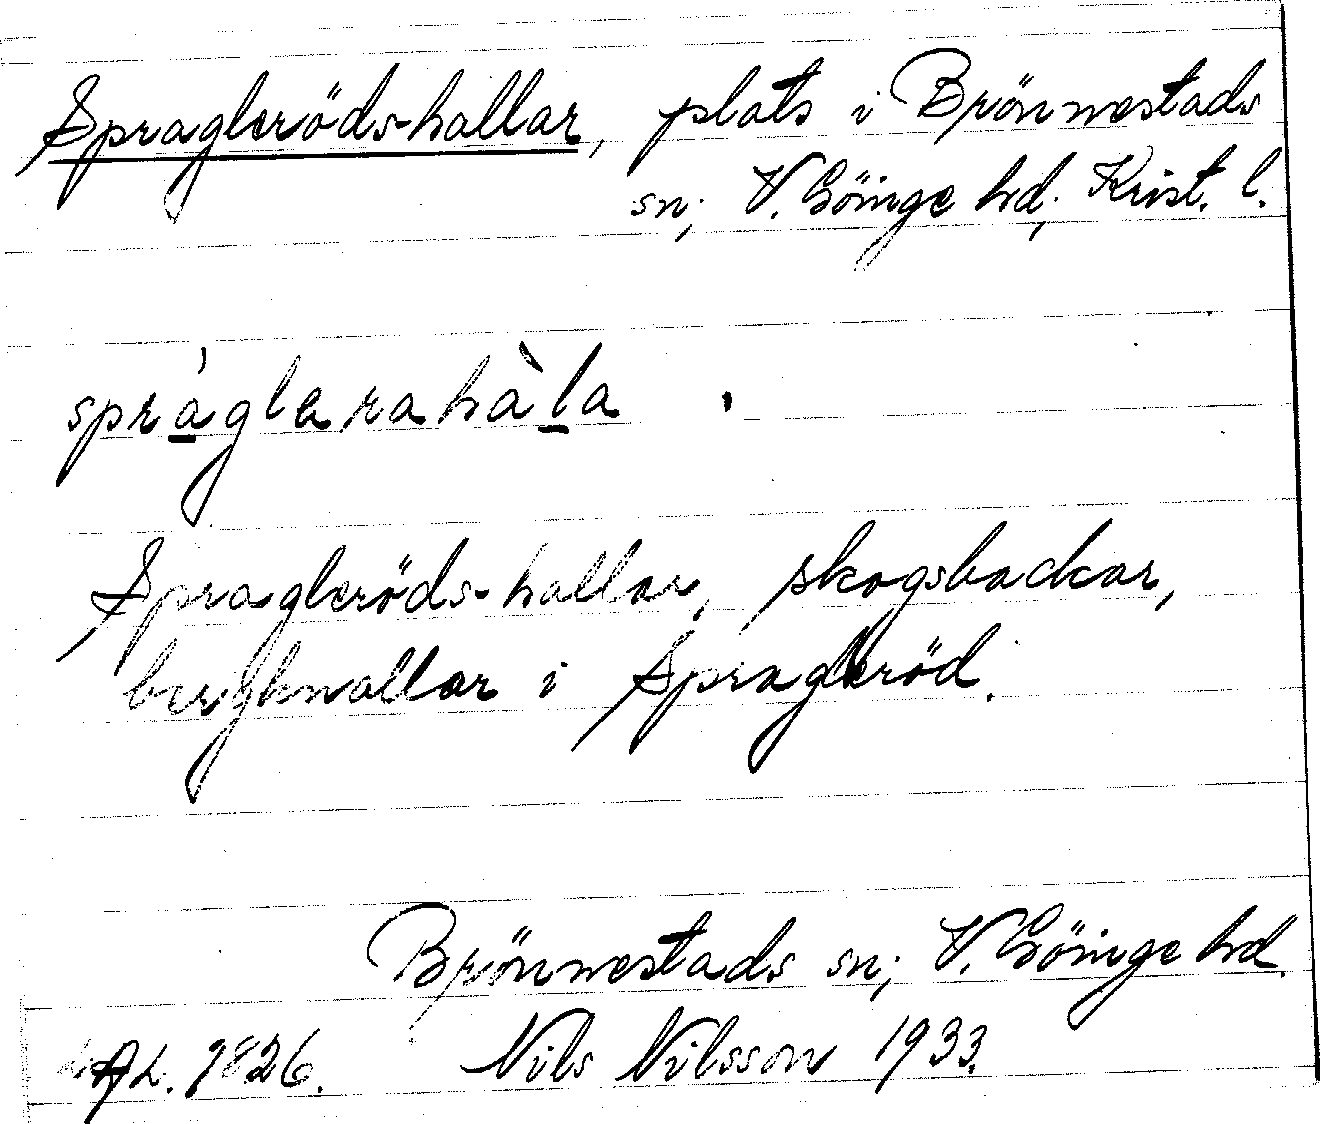 Spragleröds-hallar, plats i Brönnestads
sn, V. Göinge hd, Krist. l.
sprágglerahà̱la
Spragleröds-hallar, skogsbackar,
bergknallar i Spragleröd.
Brönnestads sn, V. Göinge hd.
Nils Nilsson 1933.